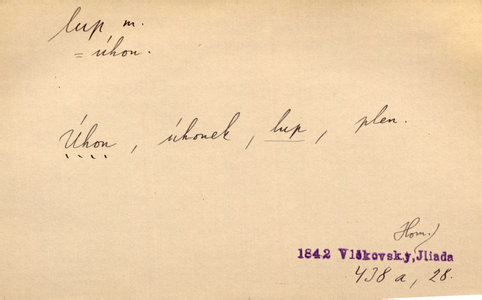 lup m.
= úhon.
Úhon, úhonek, lup, plen.
Hom.)
1842 Vlčkovský, Jliada
438 a, 28.